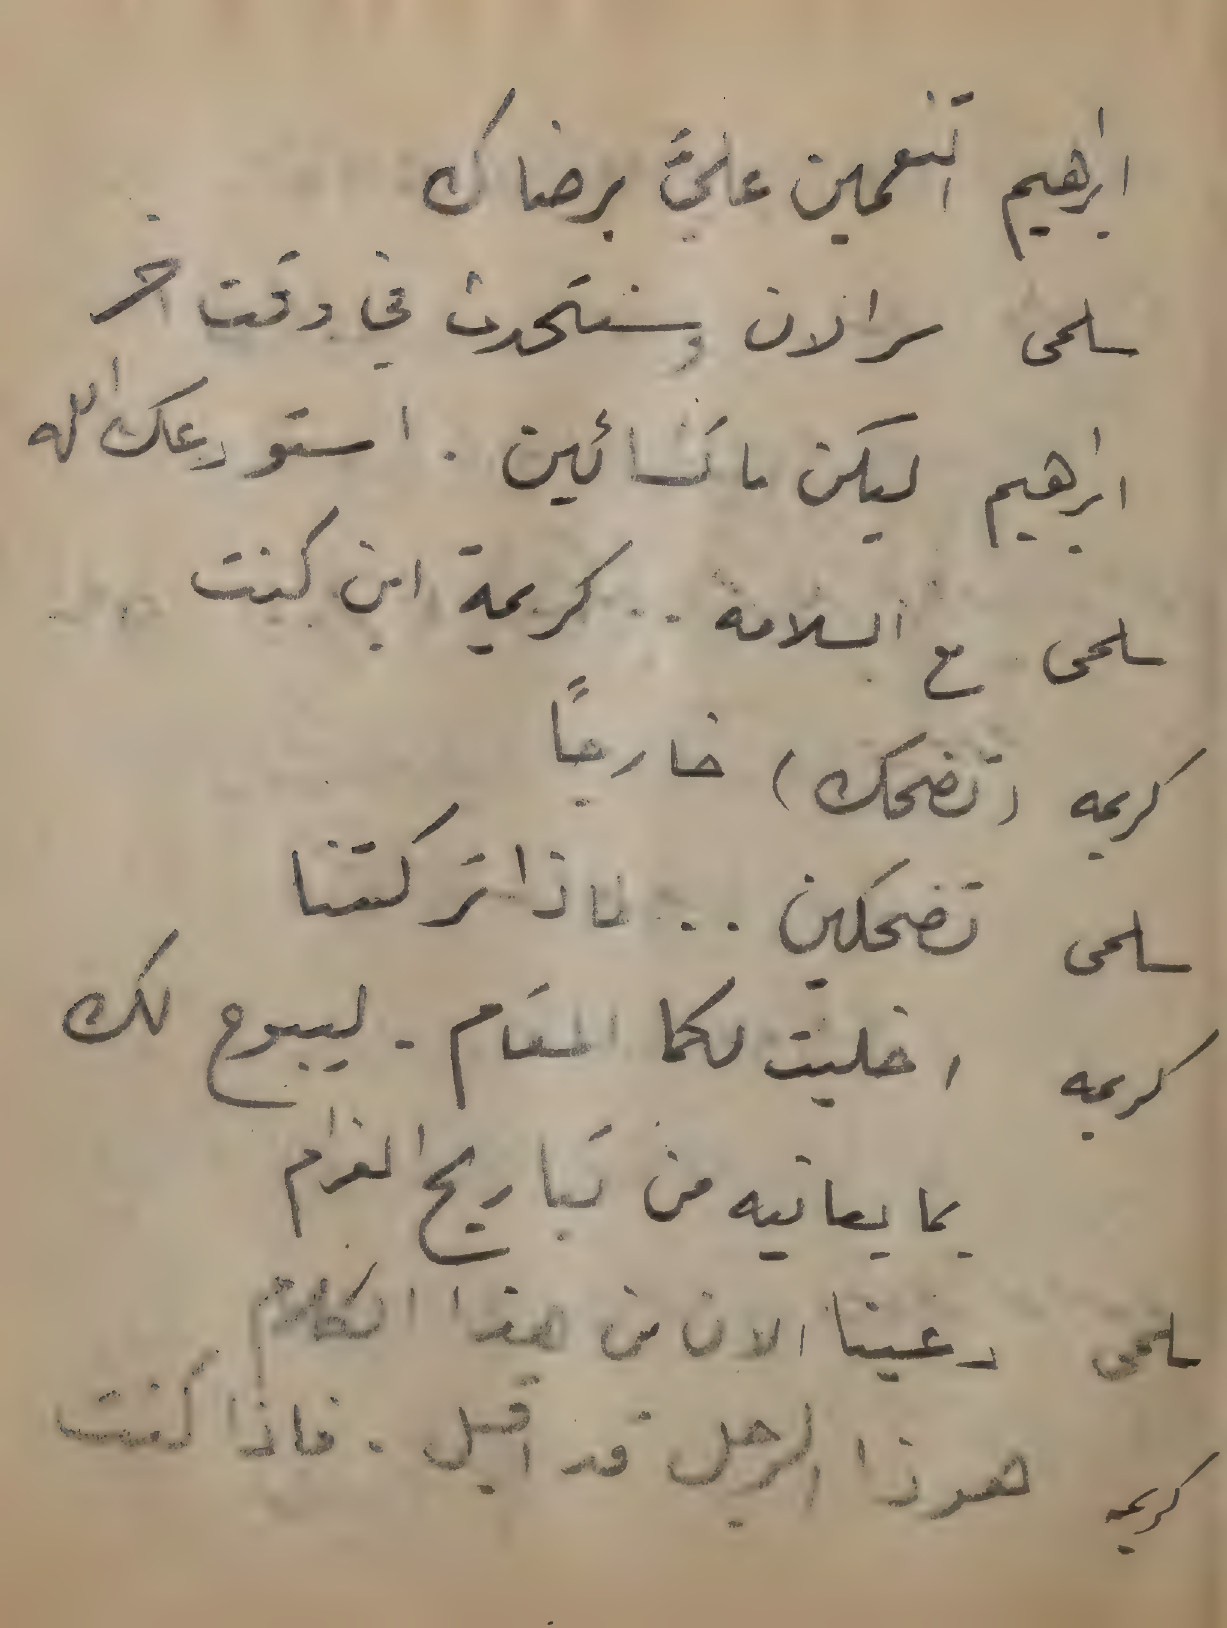 ابرهيم اتنعمين عليَّ برضاك
سلمى سر الان وسنتحدث في وقت اخر
ابرهيم ليكن ما تشائين . استودعك الله
سلمى مع السلامه .. كريمة اين كنت
كريمه (تضحك) خارجاً
سلمى تضحكين .. لماذا تركتنا
كريمه اخليت لكما المقام . ليبوح لك
بما يعانيه من تباريح الغرام
سلمى دعينا الان من هذا الكلام
كريمه هوذا الرجل قد اقبل . فاذا كنت